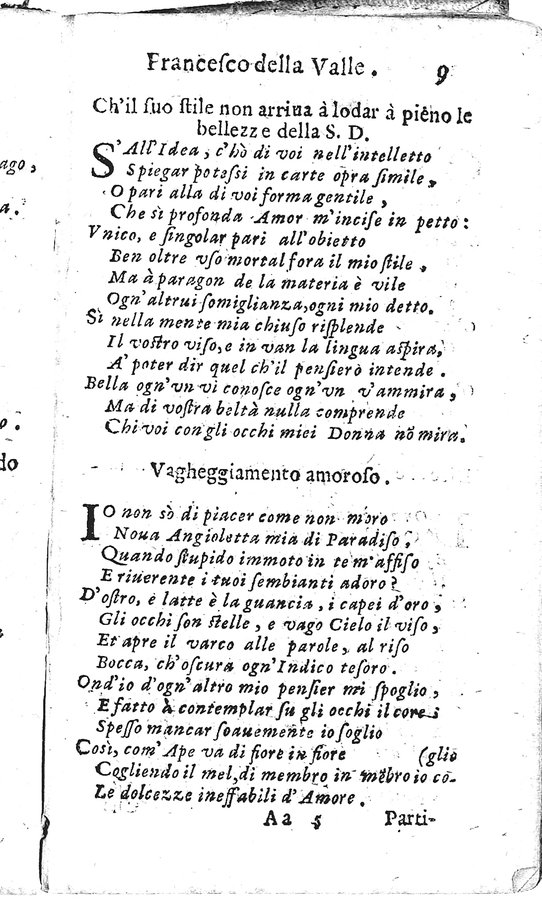 Francesco della Valle. 9
Ch'il suo ſtile non arriua à lodar à pieno le
bellezze della S. D.
S'All'Idea, c'hò di voi nell'intelletto
Spiegar poteſſi in carte opra ſimile,
O pari alla di voi forma gentile,
Che sì profonda Amor m'inciſe in petto:
Vnico, e ſingolar pari all'obietto
Ben oltre vſo mortal fora il mio ſtile,
Ma à paragon de la materia è vile
Ogn'altrui ſomiglianza, ogni mio detto.
Sì nella mente mia chiuſo riſplende
Il voſtro viſo, e in van la lingua aſpira,
A' poter dir quel ch'il penſierò intende.
Bella ogn'vn vi conoſce ogn'vn v'ammira,
Ma di voſtra beltà nulla comprende
Chi voi con gli occhi miei Donna nõ mira.
Vagheggiamento amoroſo.
IO non sò di piacer come non moro
Noua Angioletta mia di Paradiſo,
Quando ſtupido immoto in te m'affiſo
E riuerente i tuoi ſembianti adoro?
D'oſtro, e latte è la guancia, i capei d'oro,
Gli occhi ſon ſtelle, e vago Cielo il viſo,
Et apre il varco alle parole, al riſo
Bocca, ch'oſcura ogn'Indico teſoro.
Ond'io d'ogn'altro mio penſier mi ſpoglio,
E fatto à contemplar ſu gli occhi il core
Speſſo mancar ſoauemente io ſoglio
Così, com'Ape va di fiore in fiore (glio
Cogliendo il mel, di membro in mẽbro io co-
Le dolcezze ineffabili d'Amore.
Aa 5 Parti-
ago,
a.
o.
do